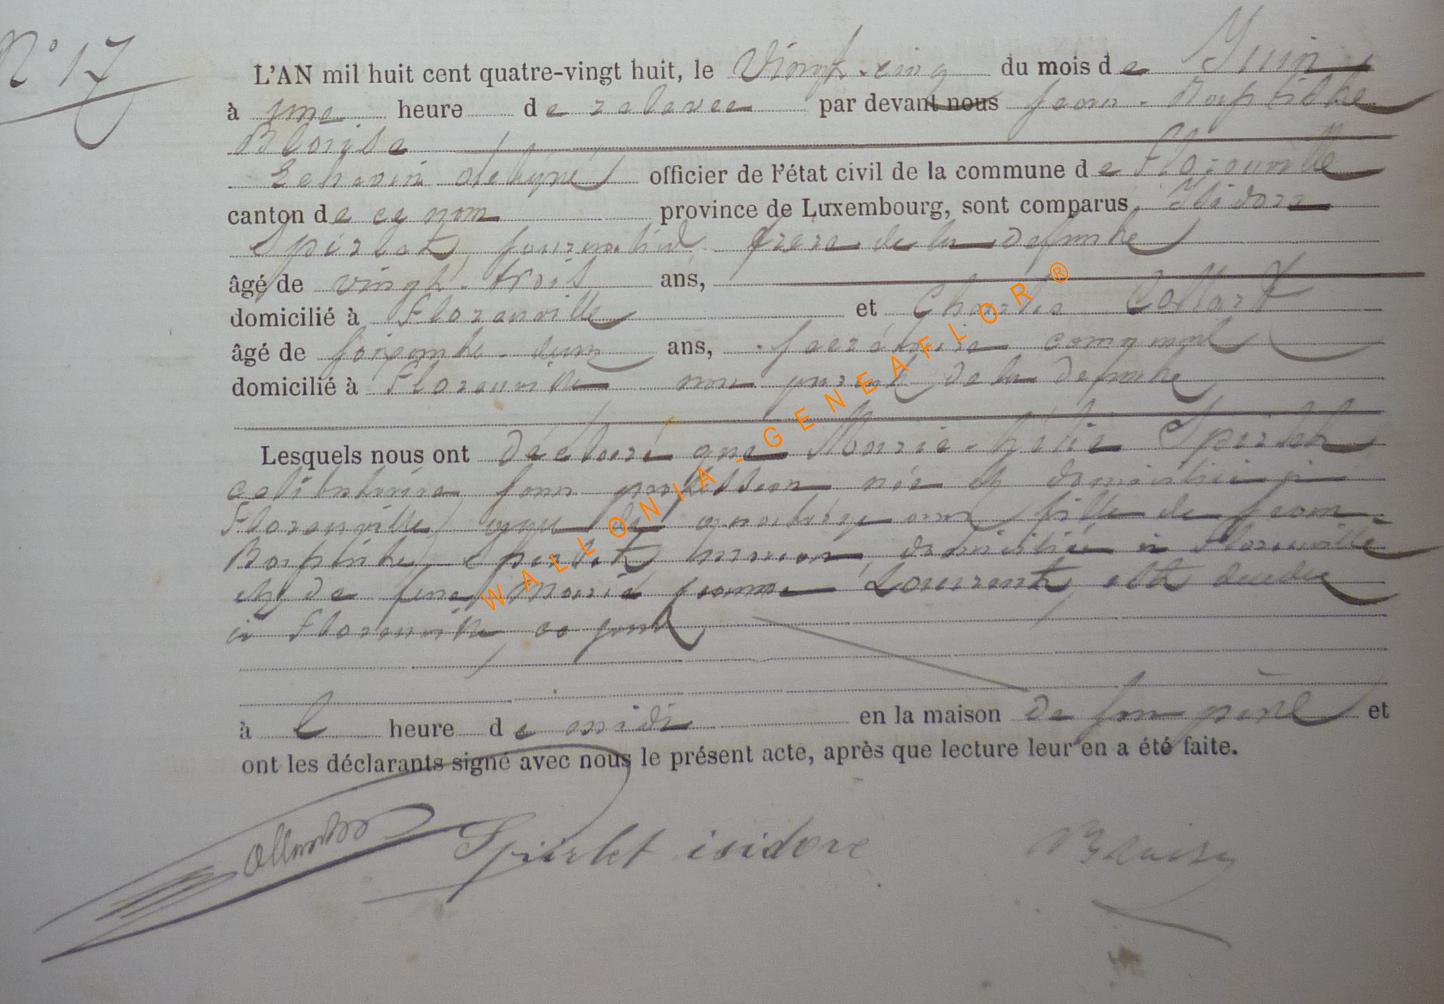 N° 17
L'AN mil huit cent quatre-vingt huit, le Vingt-cinq du mois de Juin
à une heure de relevée par devant nous Jean-Baptiste
Echevin délégué officier de l'état civil de la commune de Florenville
canton de ce nom province de Luxembourg, sont comparus Isidore
Spirlet journalier frère de la défunte
âgé de vingt-trois ans,
domicilié à Florenville et Charles Collard
âgé de ans, secrétaire communal
domicilié à Florenville non parent de la défunte
Lesquels nous ont déclaré que Marie Spirlet
célibataire sans profession née et domiciliée à
Florenville fille de Jean
Baptiste Spirlet maçon domicilié à Florenville
et de feue Marie Jeanne Laurent est décédée
à Florenville ce jour
à heure de midi en la maison de son père et
ont les déclarants signé avec nous le présent acte, après que lecture leur en a été faite.
Spirlet isidore
WALLONIA-GENEAFLOR®